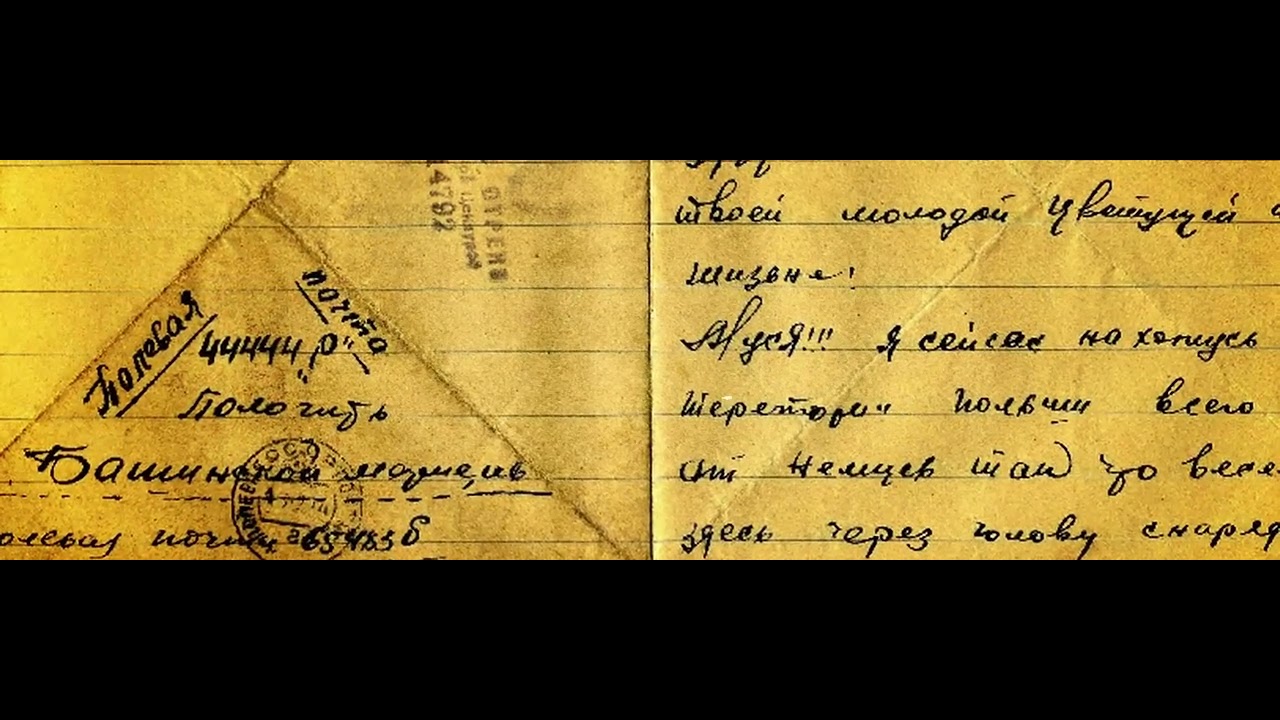 Полевая почта
44444 „Р"
Полочить
Башинской
олевая почта 65483 б
4792
твоей молодой цветущей
жизне!
Муся!!! Я сейчас нахожусь
теретории польши всего
от немцев так что весе
здесь через голову снаряд